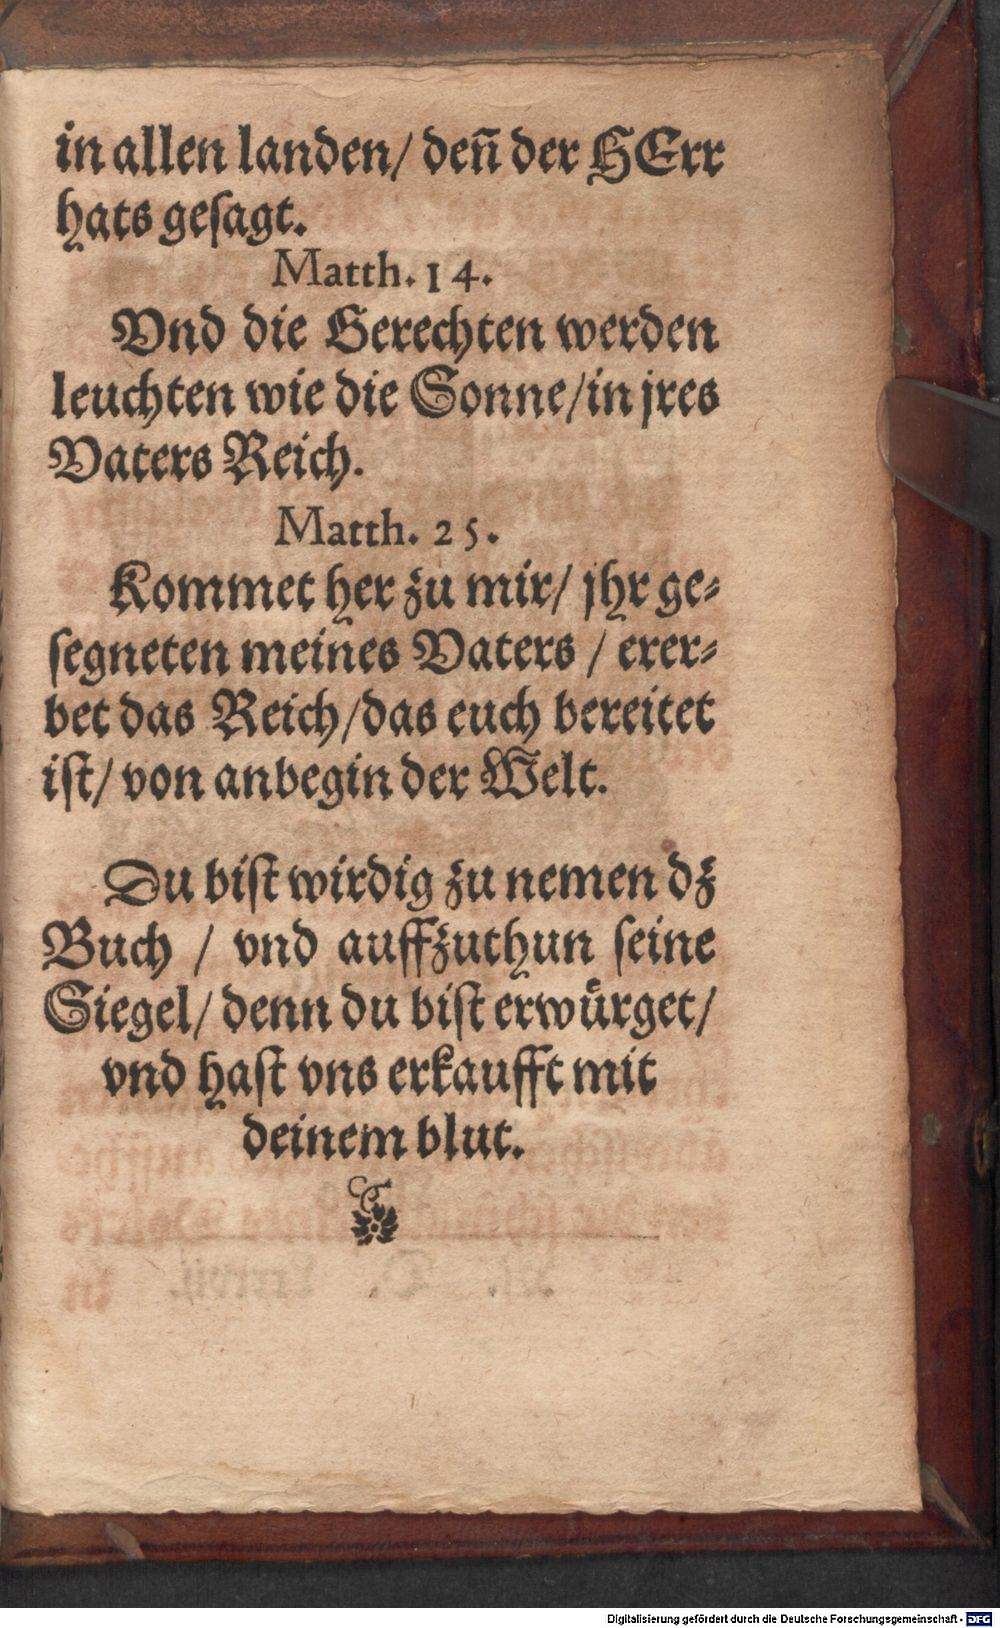 in allen landen/ deñ der HErr
hats gesagt.
Matth. 14.
Vnd die Gerechten werden
leuchten wie die Sonne/in jres
Vaters Reich.
Matth. 25.
Kommet her zu mir/ jhr ge-
segneten meines Vaters / erer-
bet das Reich/das euch bereitet
ist/ von anbegin der Welt.
Du bist wirdig zu nemen dz
Buch / vnd auffzuthun seine
Siegel/ denn du bist erwürget/
vnd hast vns erkaufft mit
deinem blut.
Digitalisierung gefördert durch die Deutsche Forschungsgemeinschaft - DFG